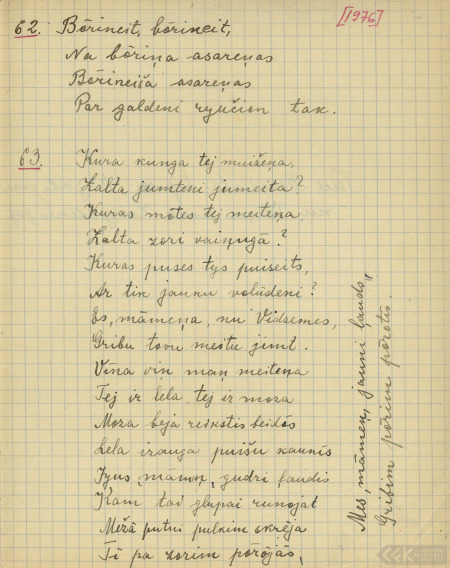 [1976]
62. Bōrineit, bōrineit,
Na bōriņa asareņas
Bōrineiša asareņas
Par galdeni ryučion tak.
63. Kura kunga tej muižeņa,
Zalta jumteni jumeita?
Kuras mōtes tej meiteņa,
Zalta zori vaiņugā?
Kuras puses tys puiseits,
Ar tik jauku volūdeni?
Es, māmeņa, nu Vidzemes,
Gribu tovu meitu jimt.
Vīna viņ maņ meiteņa
Tej ir lela, tej ir moza
Moza beja reikstis beidōs
Lela izauga puišu kaunōs
Jyus, mamm, gudri ļaudis
Kam tad glupai runojat
Mežā putni pulkim skrēja
Ti pa zorim pōrōjās,
Mes, māmeņ, jauni ļauds,
Gribim pōrim pōrotīs.